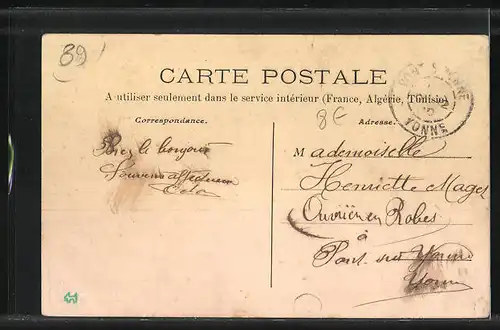 89
CARTE POSTALE
A utiliser seulement dans le service intérieur (France, Algérie, Tunisie)
8€
Correspondance.
Adresse.
PONT S YONNE
YONNE
Bien le bonjour
Souvenir affectueux
Mademoiselle
Henriette Mages
Ouvrière en Robes
à
Pont sur Yonne
Yonne